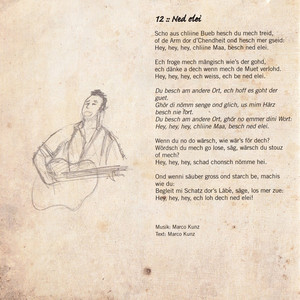 12 :: Ned elei
Scho aus chliine Bueb hesch du mech treid,
of de Arm dor d'Chendheit ond hesch mer gseid:
Hey, hey, hey, chliine Maa, besch ned elei.
Ech froge mech mängisch wie's der gohd,
ech dänke a dech wenn mech de Muet verlohd.
Hey, hey, hey, ech weiss, ech be ned elei.
Du besch am andere Ort, ech hoff es goht der
guet.
Ghör di nömm senge ond glich, us mim Härz
besch nie fort.
Du besch am andere Ort, ghör no emmer dini Wort:
Hey, hey, hey, chliine Maa, besch ned elei.
Wenn du no do wärsch, wie wär's för dech?
Wördsch du mech go lose, säg, wärsch du stouz
of mech?
Hey, hey, hey, schad chonsch nömme hei.
Ond wenni säuber gross ond starch be, machis
wie du:
Begleit mi Schatz dor's Läbe, säge, los mer zue:
Hey, hey, hey, ech loh dech ned elei!
Musik: Marco Kunz
Text: Marco Kunz